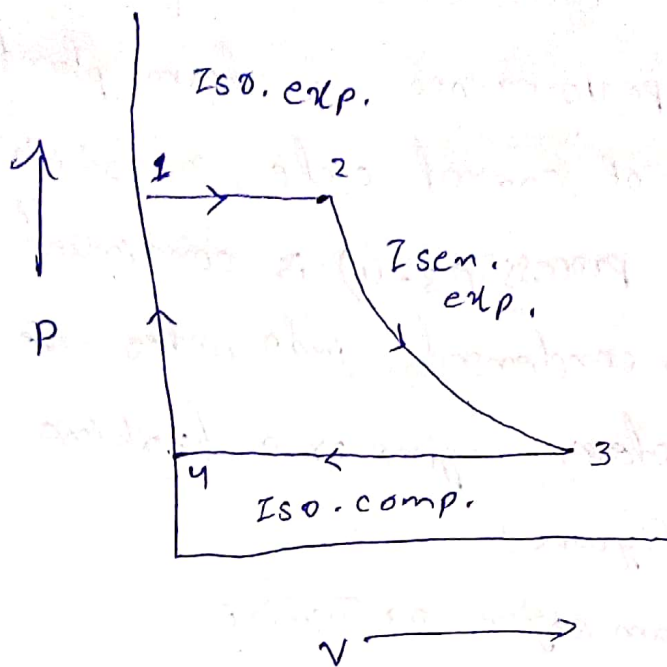 Iso. exp.
1
2
Isen.
exp.
P
3
4
Iso. comp.
V